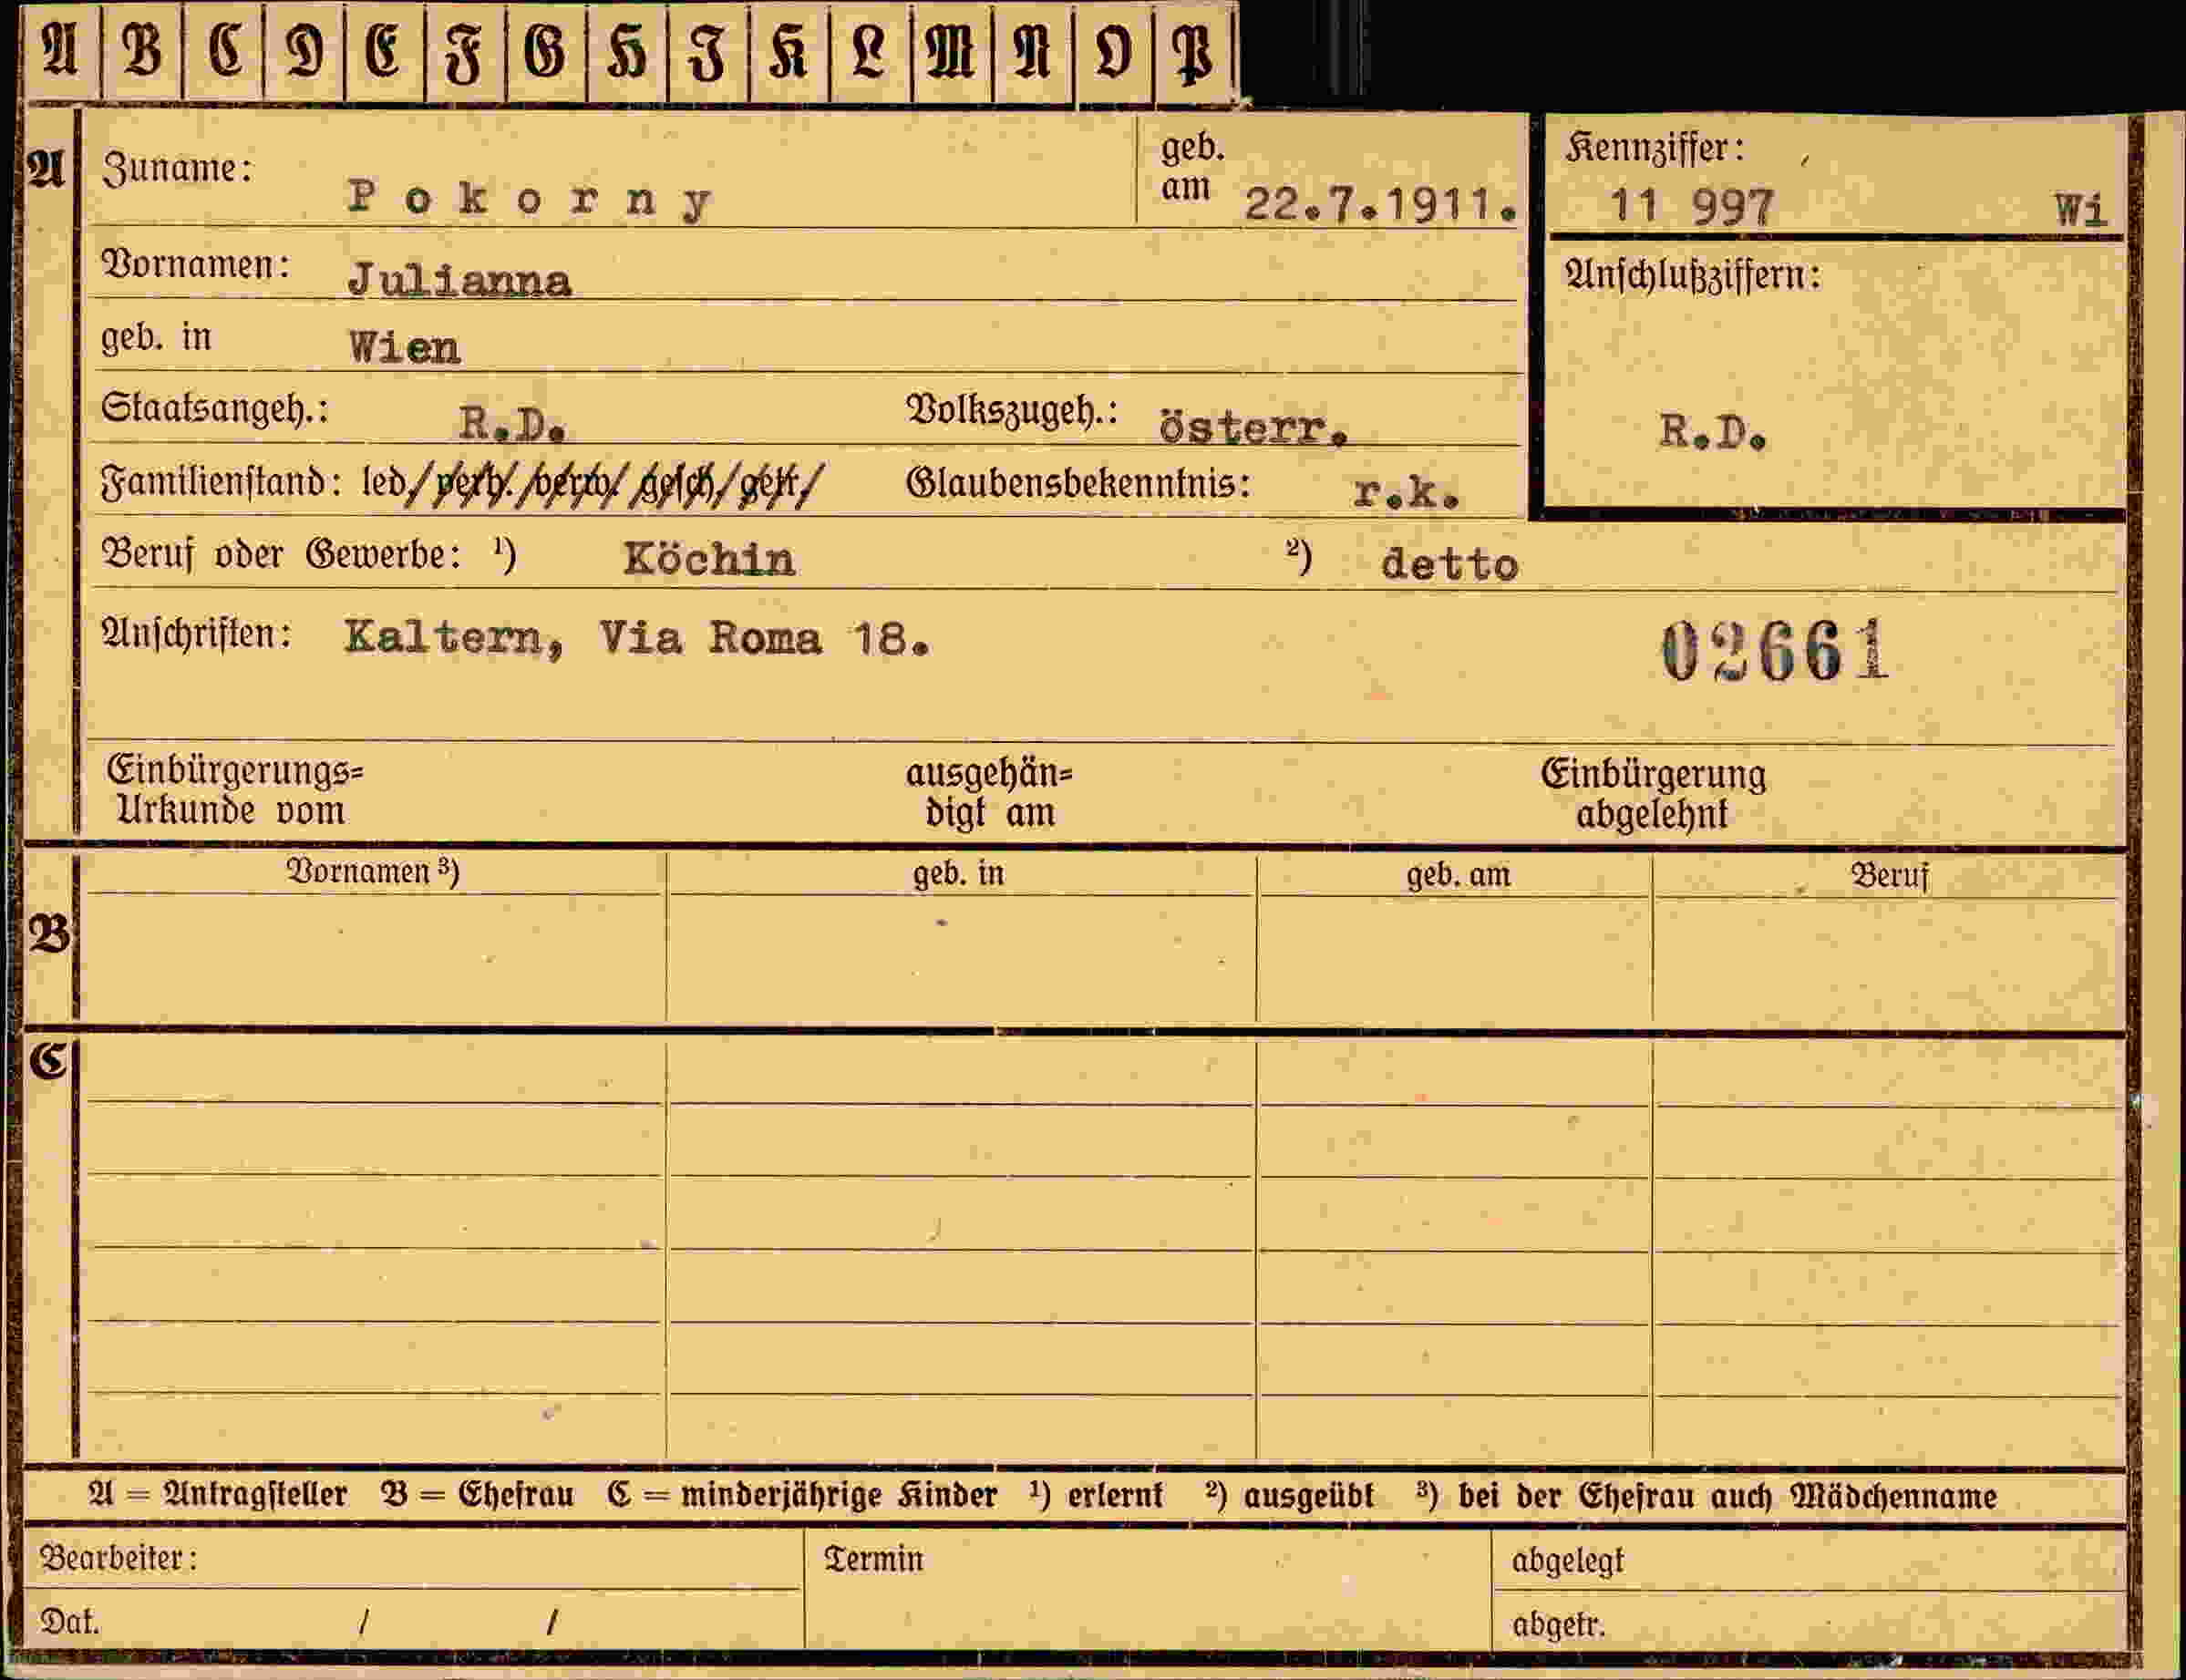 A B C D E F G H I K L M N O P
A
Zuname: Pokorny
geb. am 22.7.1911.
Kennziffer:
11 997 Wi
Vornamen: Julianna
Anschlußziffern:
geb. in Wien
Staatsangeh.: R.D. Volkszugeh.: österr.
R.D.
Familienstand: led/verh./verw/gesch/getr/ Glaubensbekenntnis: r.k.
Beruf oder Gewerbe: ¹) Köchin ²) detto
Anschriften: Kaltern, Via Roma 18.
02661
Einbürgerungs=
Urkunde vom
ausgehän=
digt am
Einbürgerung
abgelehnt
B
Vornamen ³) geb. in geb. am Beruf
C
A = Antragsteller B = Ehefrau C = minderjährige Kinder ¹) erlernt ²) ausgeübt ³) bei der Ehefrau auch Mädchenname
Bearbeiter: Termin abgelegt
Dat. / / abgetr.